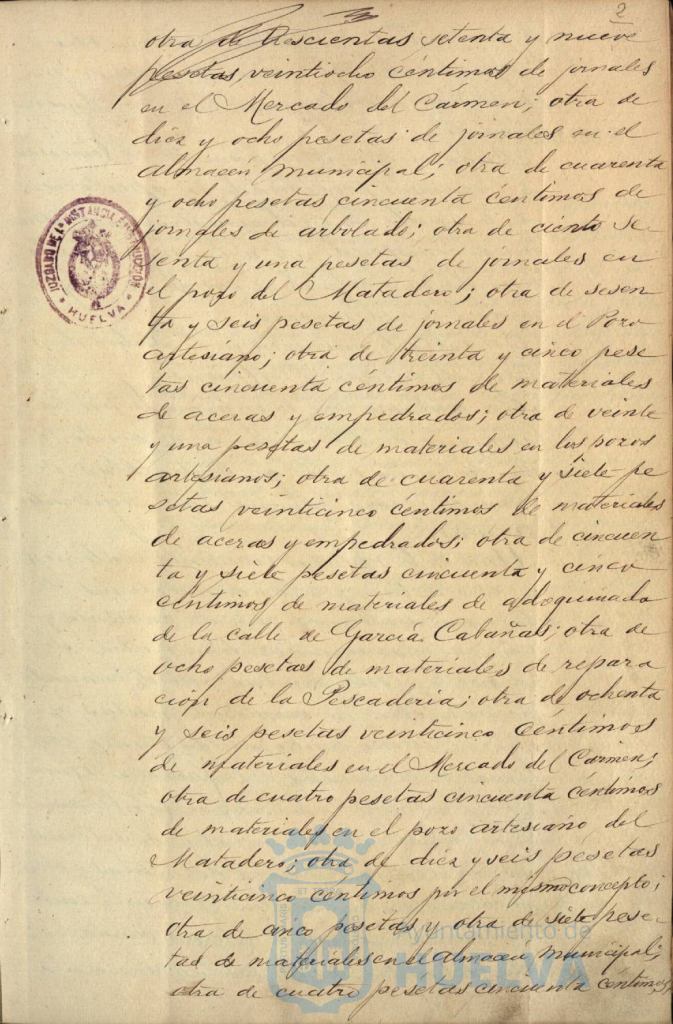 2
otra de trescientas setenta y nueve
pesetas veintiocho céntimos de jornales
en el Mercado del Cármen; otra de
diez y ocho pesetas de jornales en el
almacén municipal; otra de cuarenta
y ocho pesetas cincuenta céntimos de
jornales de arbolado; otra de ciento se
tenta y una pesetas de jornales en
el pozo del Matadero; otra de sesen
ta y seis pesetas de jornales en el Pozo
artesiano; otra de treinta y cinco pese
tas cincuenta céntimos de materiales
de aceras y empedrados; otra de veinte
y una pesetas de materiales en los pozos
artesianos; otra de cuarenta y siete pe
setas veinticinco céntimos de materiales
de aceras y empedrados; otra de cincuen
ta y siete pesetas cincuenta y cinco
céntimos de materiales de adoquinado
de la calle de García Cabañas; otra de
ocho pesetas de materiales de repara
ción de la Pescaderia; otra de ochenta
y seis pesetas veinticinco céntimos
de materiales en el Mercado del Carmen;
otra de cuatro pesetas cincuenta céntimos
de materiales en el pozo artesiano del
Matadero; otra de diez y seis pesetas
veinticinco céntimos por el mismo concepto;
otra de cinco pesetas y otra de siete pese-
tas de materiales en el almacén municipal;
otra de cuatro pesetas cincuenta céntimos
JUZGADO DE 1ª INSTANCIA E INSTRUCCION
HUELVA
Ayuntamiento de
HUELVA